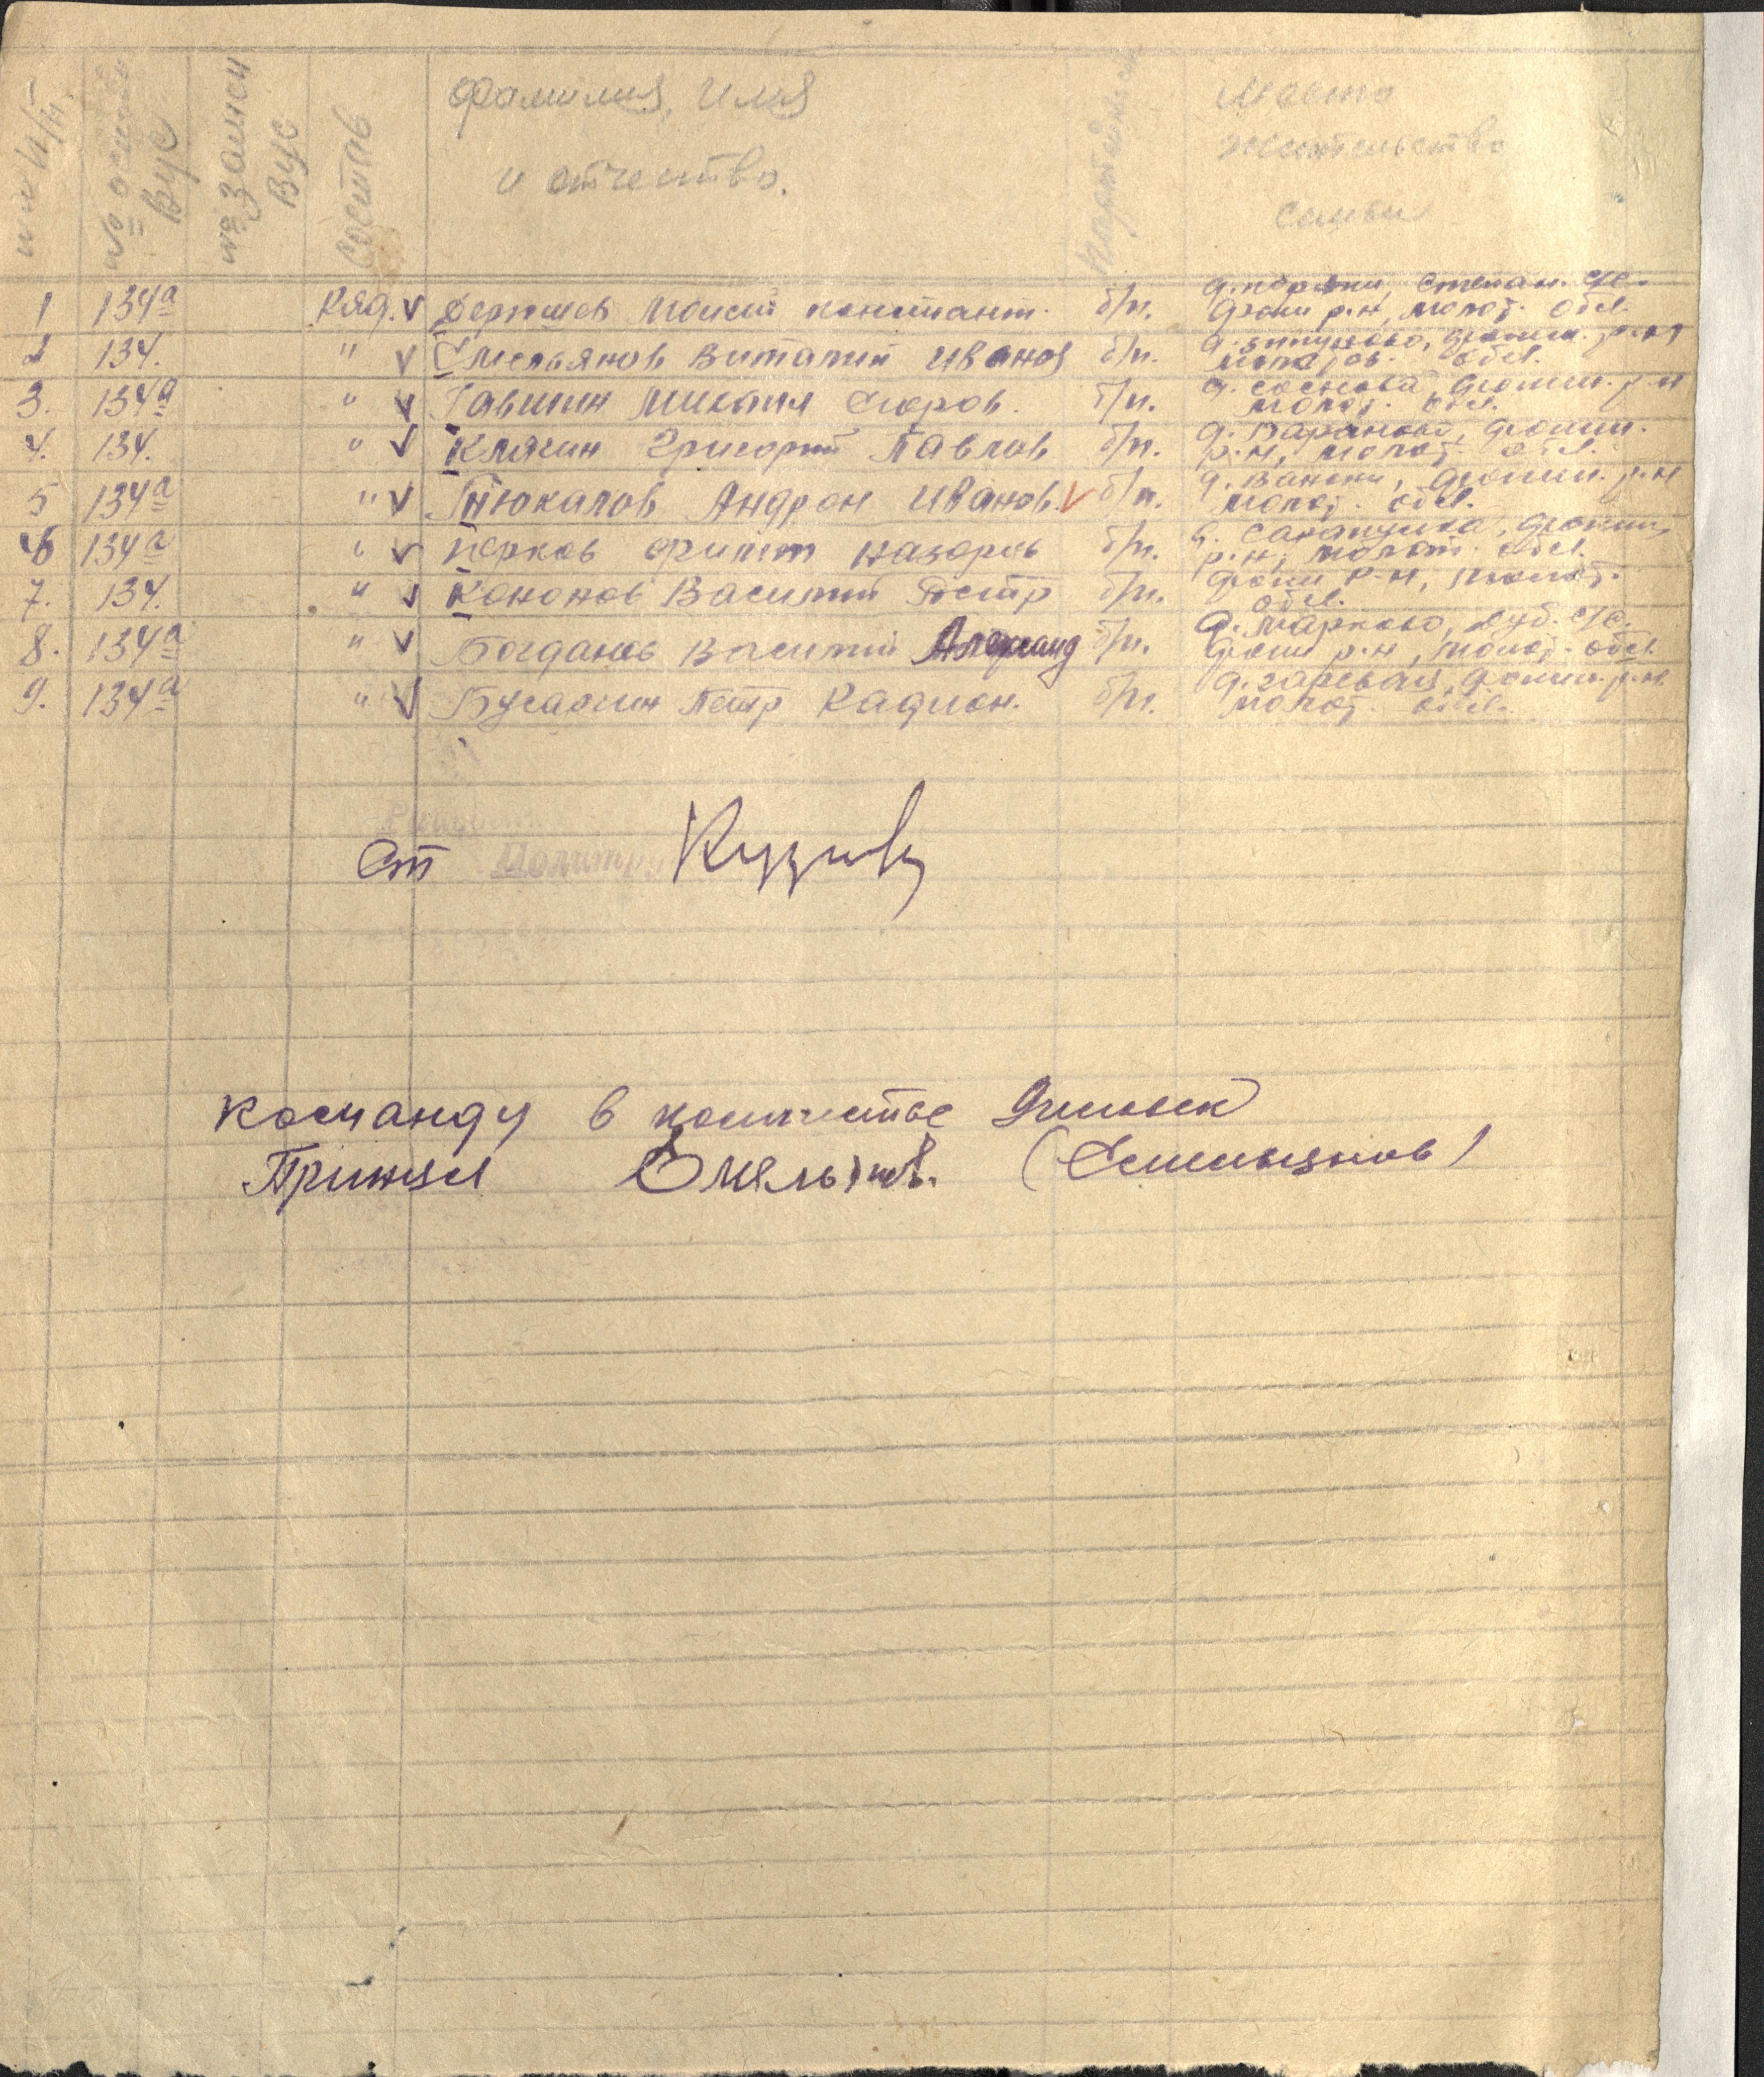 №№ п/п № основн ВУС № замен ВУС Состав Фамилия, Имя и отчество. Партийность Место жительства семьи
1 134а Ряд. v Дерюшев Моисей Констант. б/п. д. Степан. с/с. Фоки р-н, Молот. обл.
2 134. " v Емельянов Виталий Иванов б/п. Фокин. р-н Молотов. обл.
3. 134а " v Гавшин Михаил Егоров. б/п. д. Сосновка, Фокин. р-н Молот. обл.
4. 134. " v Клячин Григорий Павлов б/п. д. Фокин. р-н, Молот. обл.
5 134а " v Тюкалов Андрон Иванов. v б/п. д. Ваньки, Фокин. р-н Молот. обл.
6 134а " v Перков Филип Назаров б/п. Фокин. р-н, Молот. обл.
7. 134. " v Кононов Василий Петр б/п. Фоки р-н, Молот. обл.
8. 134а " v Богданов Василий Александ б/п. д. Марково, Дуб. с/с. Фоки р-н, Молот. обл.
9. 134а " v Бусаргин Петр Радион. б/п. д. Гаревая, Фокин. р-н. Молот. обл.
Ст Политру
Команду в количестве 9 человек
Принял Емельянов. (Емельянов)